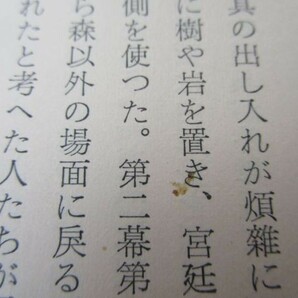 の出し入れが煩雑に
に樹や岩を置き、宮廷
側を使つた。第二幕第
ら森以外の場面に戻る
れたと考へた人たちが